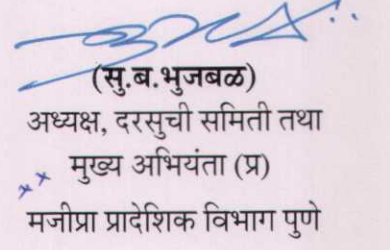 (सु.ब.भुजबळ)
अध्यक्ष, दरसुची समिती तथा
मुख्य अभियंता (प्र)
मजीप्रा प्रादेशिक विभाग पुणे